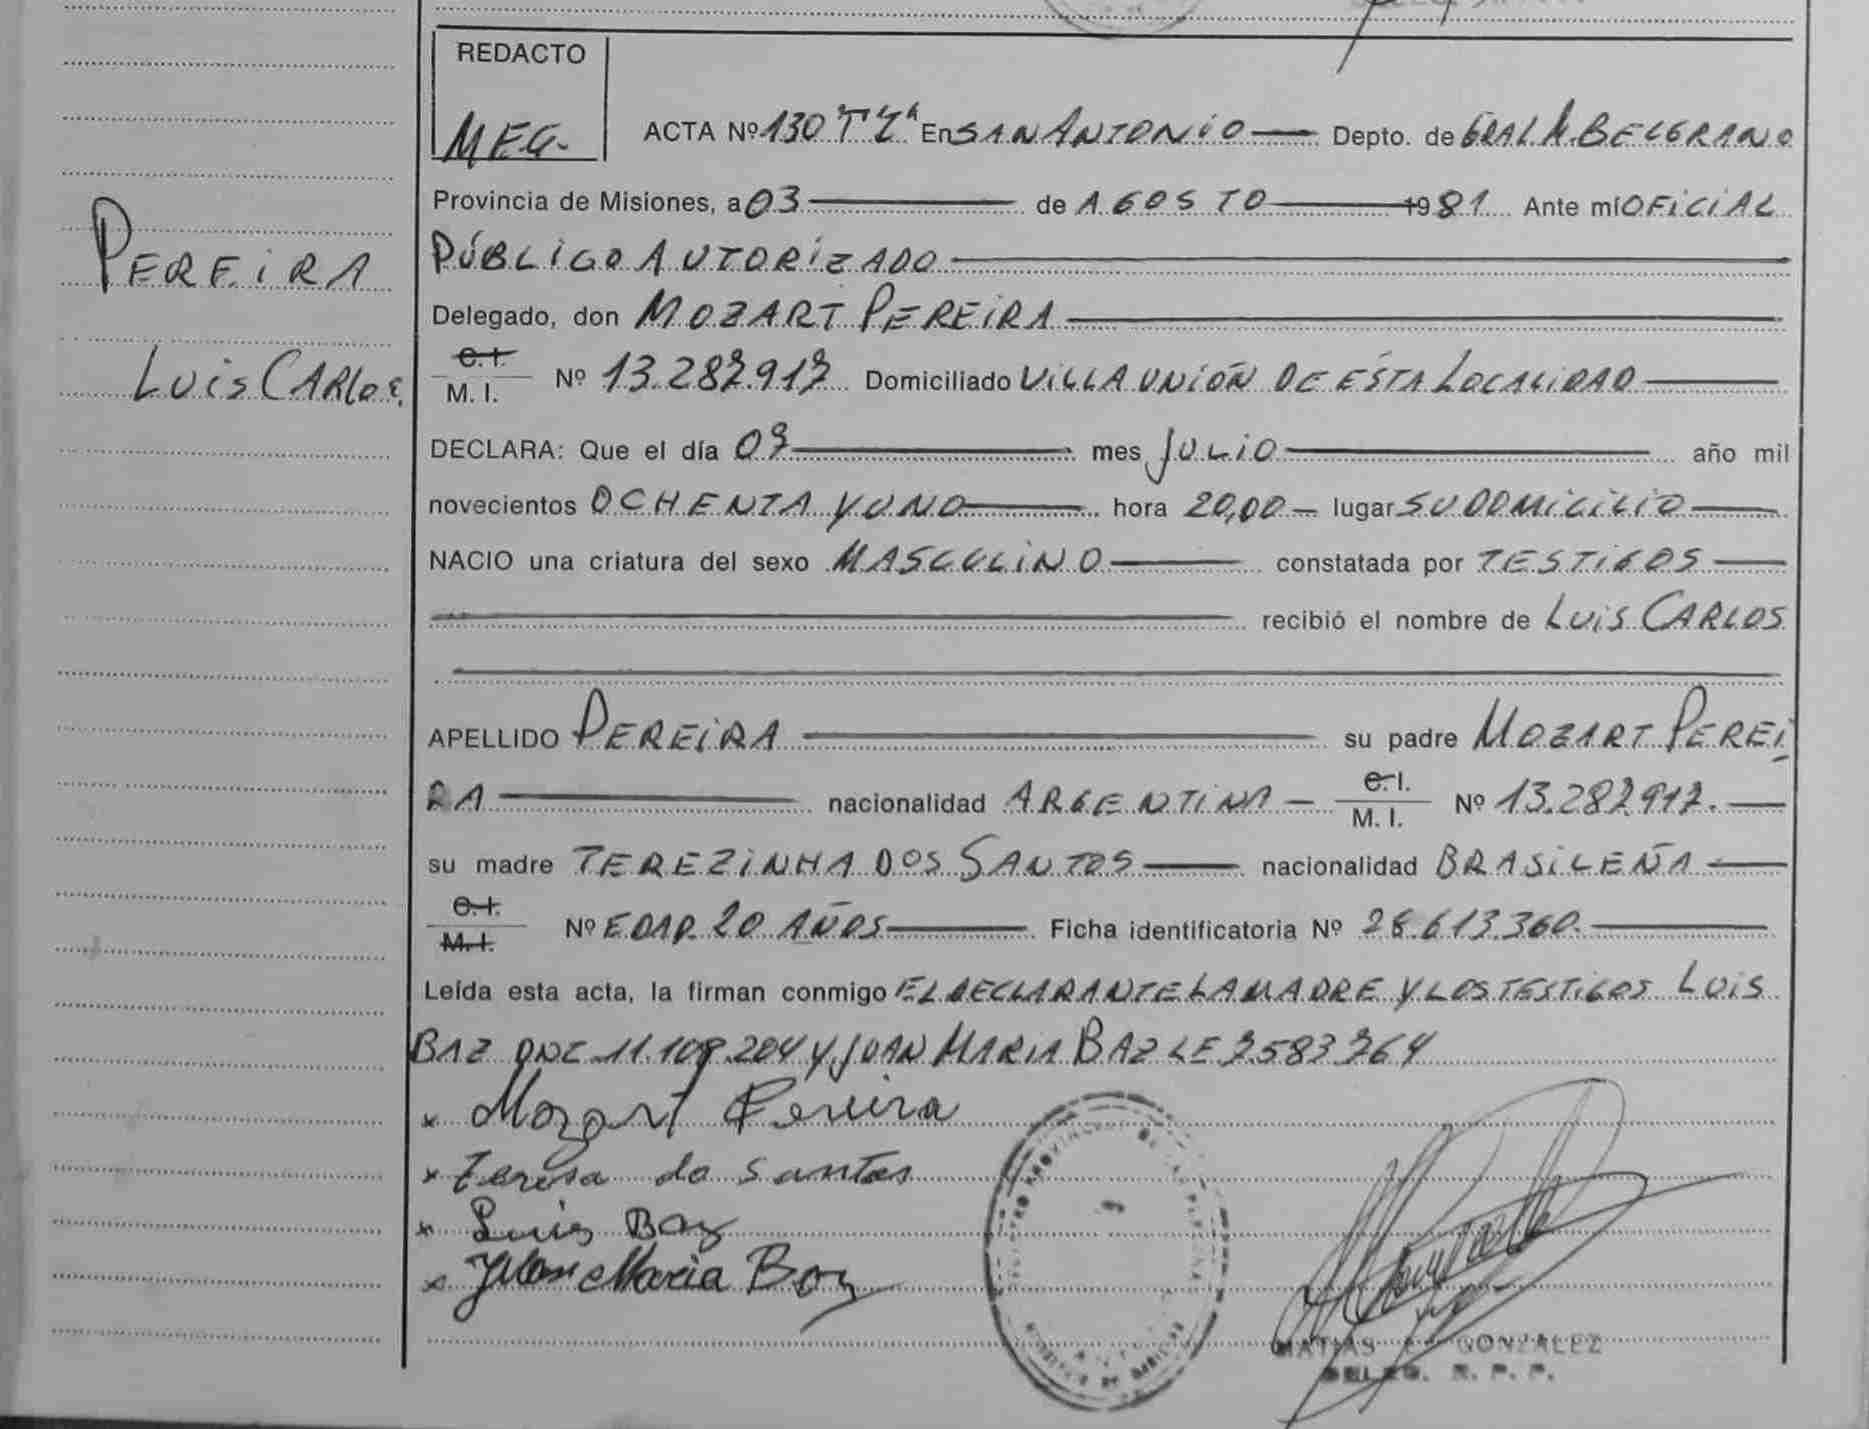 REDACTO
MEG.
ACTA Nº 130 Tº 2ª En SAN ANTONIO Depto. de GRAL M. BELGRANO
Provincia de Misiones, a 03 de AGOSTO 1981 Ante mí OFICIAL
PÚBLICO AUTORIZADO
Delegado, don MOZART PEREIRA
C.I.
M. I. Nº 13.287.917 Domiciliado VILLA UNIÓN DE ÉSTA LOCALIDAD
DECLARA: Que el día 07 mes JULIO año mil
novecientos OCHENTA Y UNO hora 20,00 lugar SU DOMICILIO
NACIO una criatura del sexo MASCULINO constatada por TESTIGOS
recibió el nombre de LUIS CARLOS
APELLIDO PEREIRA su padre MOZART PEREI
RA nacionalidad ARGENTINA C.I.
M. I. Nº 13.287.917.
su madre TEREZINHA DOS SANTOS nacionalidad BRASILEÑA
C.I.
M.I. Nº EDAD 20 AÑOS Ficha identificatoria Nº 28.613.360.
Leída esta acta, la firman conmigo EL DECLARANTE LA MADRE Y LOS TESTIGOS LUIS
BAZ DNI 11.109.204 Y JUAN MARIA BAZ LE 7.583764
x Mozart Pereira
x Teresa do santos
x Luis Baz
x Juan Maria Baz
MATIAS GONZALEZ
DELEG. R. P. P.
PEREIRA
LUIS CARLOS